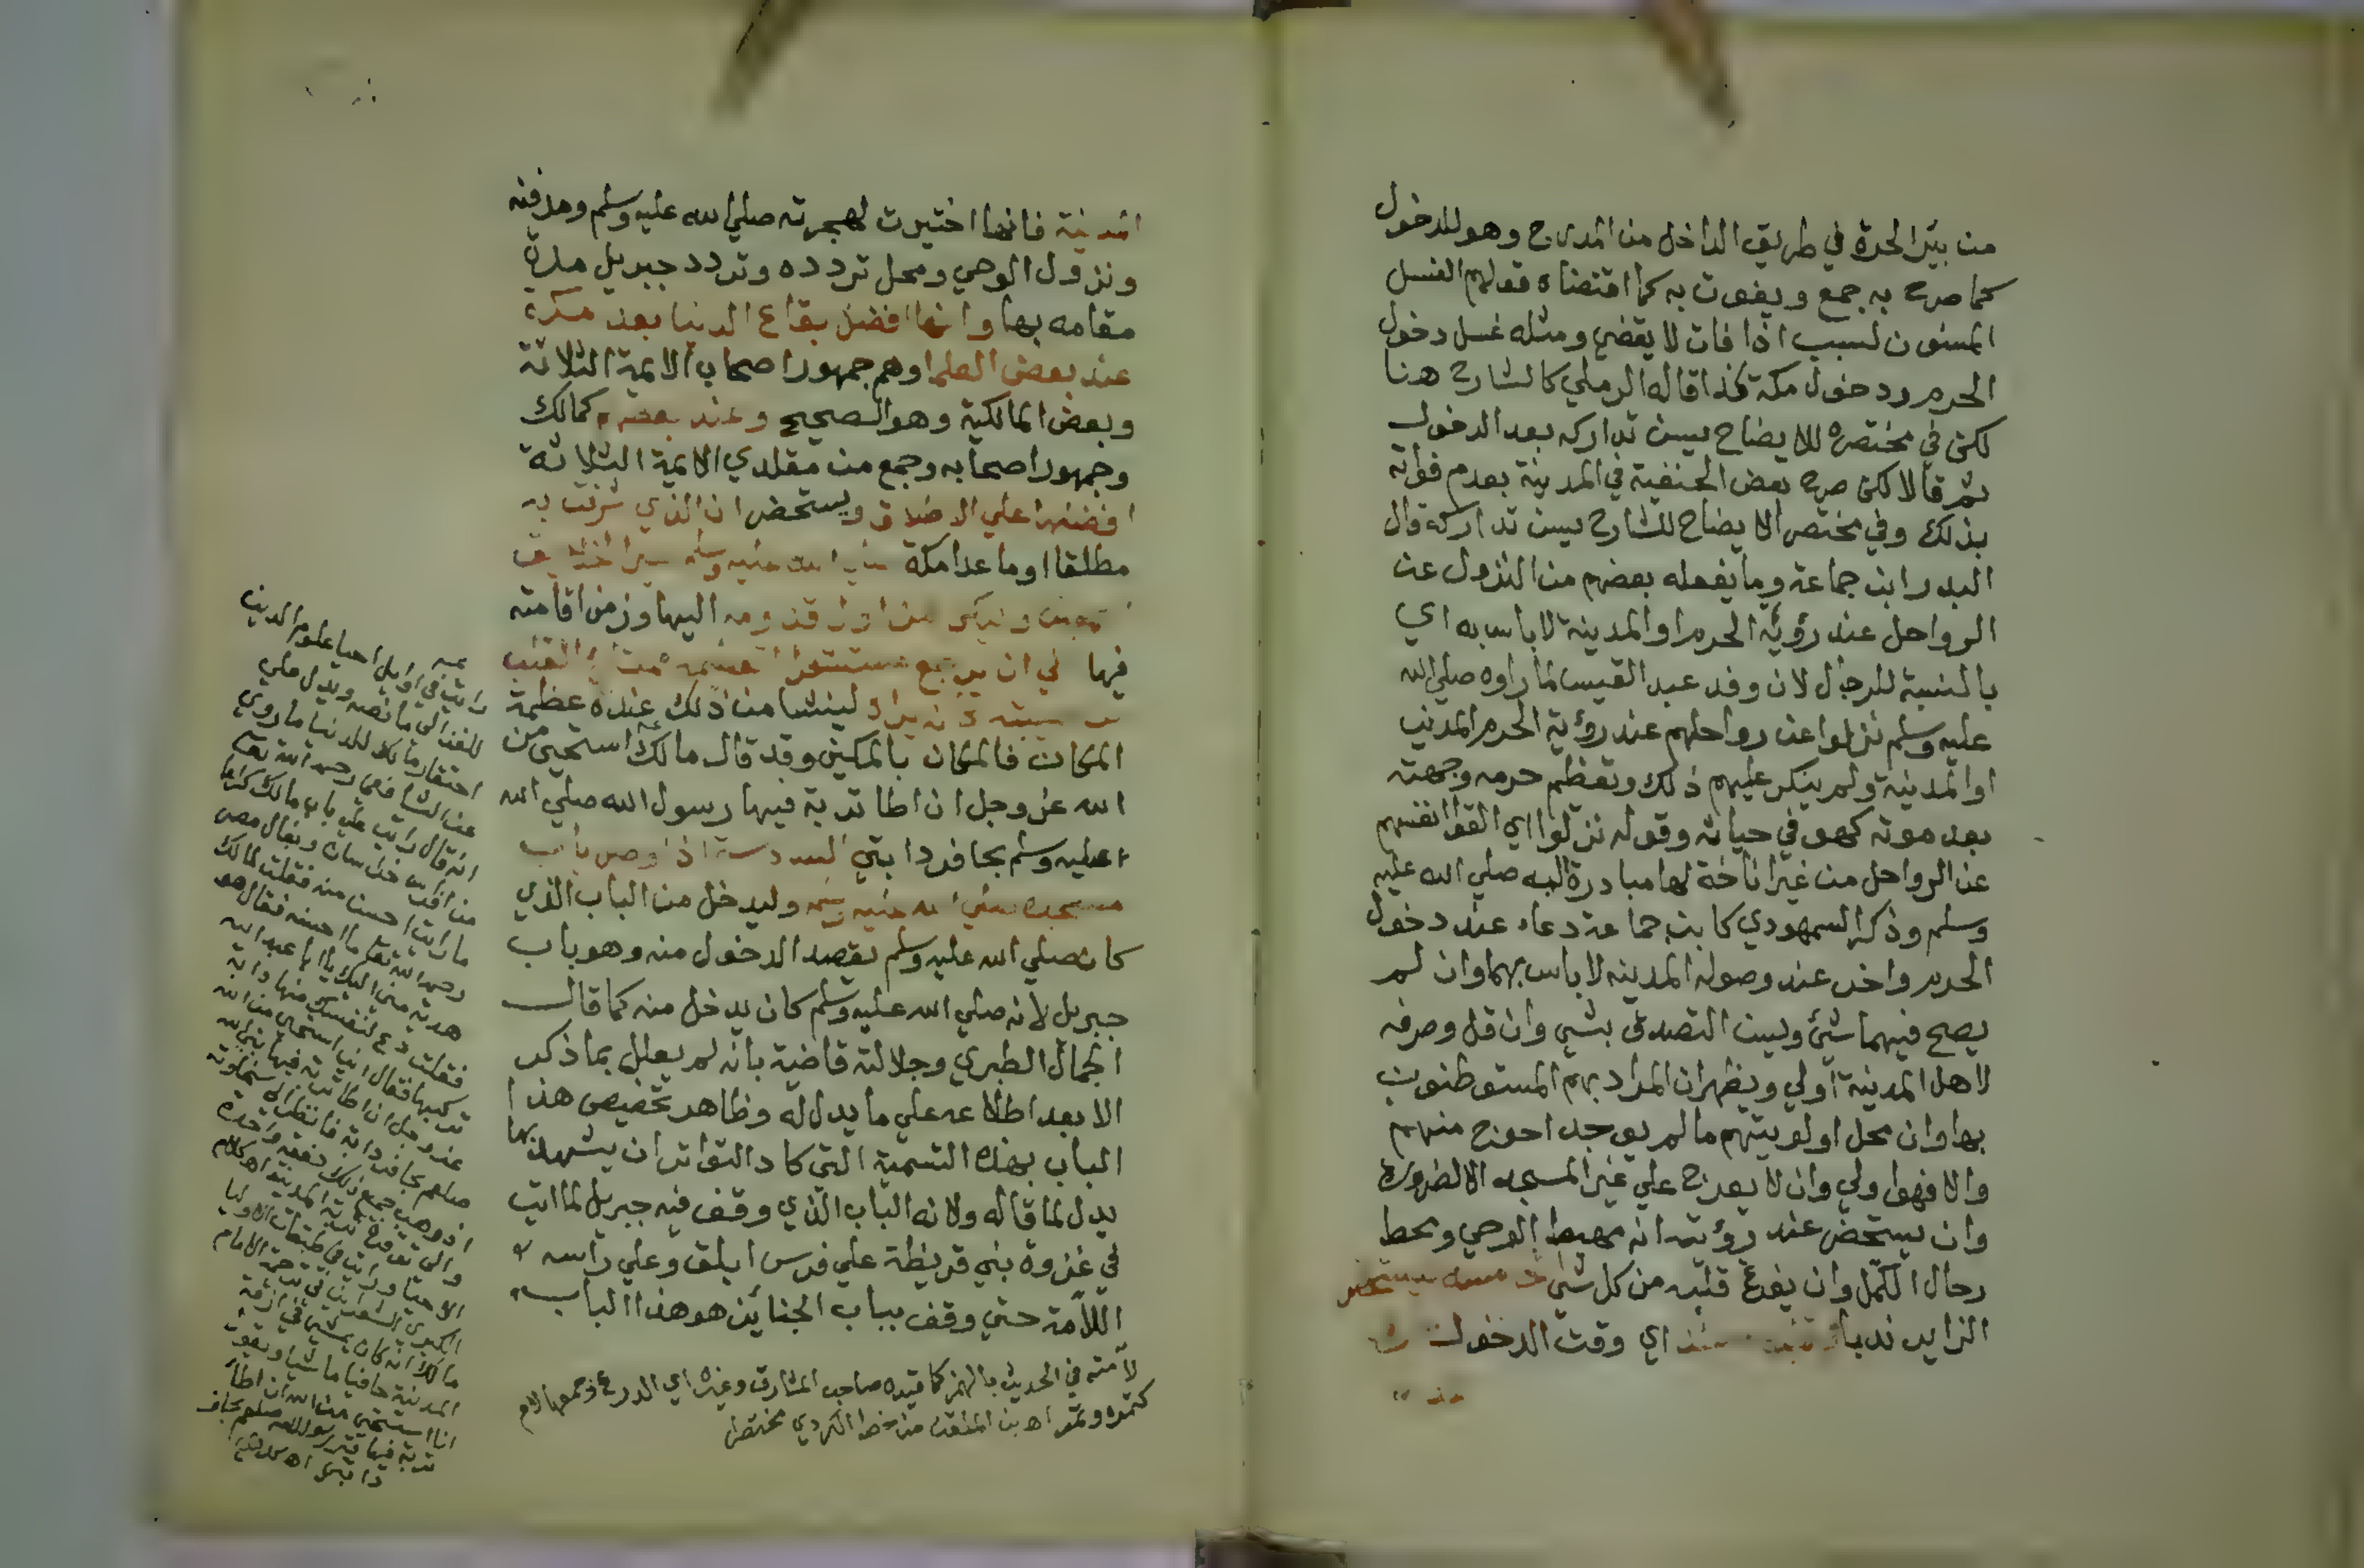 من بير الحرة في طريق الداخل من المدرج وهو للدخول
كما صرح به جمع ويفوت به كما اقتضاه قولهم الغسل
المسنون لسبب اذا فات لا يقضي ومثله غسل دخول
الحرم ودخول مكة كذا قاله الرملي كالشارح هنا
لكن في مختصره للايضاح يسن تداركه بعد الدخول
ثم قالا لكن صرح بعض الحنفية في المدينة بعدم فواته
بذلك وفي مختصر الايضاح للشارح يسن تداركه قال
البدر ابن جماعة وما يفعله بعضهم من النزول عن
الرواحل عند رؤية الحرم او المدينة لا باس به اي
بالنسبة للرجال لان وفد عبد القيس لما راوه صلي الله
عليه وسلم نزلوا عن رواحلهم عند رؤية الحرم المدني
او المدينة ولم ينكر عليهم ذلك وتعظم حرمه وجهته
بعد موته كهو في حياته وقوله نزلوا اي القوا انفسهم
عن الرواحل من غير اناخة لها مبادرة اليه صلي الله عليه
وسلم وذكر السمهودي كابن جماعة دعاء عند دخول
الحرم واخر عند وصوله المدينه لا باس بهما وان لم
يصح فيهما شئ ويسن التصدق بشي وان قل وصرفه
لاهل المدينة اولي ويظهر ان المراد بهم المستوطنون
بها وان محل اولويتهم ما لم يوجد احوج منهم
والا فهو اولي وان لا يعرج علي غير المسجد الا لضرورة
وان يستحضر عند رؤيته انه مهبط الوحي ومحط
رحال الكمل وان يفرغ قلبه من كل شي
الزايد ندبا اي وقت الدخول
المدينة فانها اختيرت لهجرته صلي الله عليه وسلم ومدفنه
ونزول الوحي ومحل تردده وتردد جبريل مدة
مقامه بها وانها افضل بقاع الدنيا بعد مكة
عند بعض العلما وهم جمهور اصحاب الايمة الثلاثة
وبعض المالكية وهو الصحيح وعند بعضهم كمالك
وجمهور اصحابه وجمع من مقلدي الايمة الثلاثة
افضلها علي الاطلاق ويستحضر ان الذي شرفت به
مطلقا او ما عدا مكة صلي الله عليه وسلم خير الخلايق
وليكن من اول قدومه اليها وزمن اقامته
فيها الي ان يرجع مستشعرا لتعظيمه القلب
لينشا من ذلك عنده عظمة
المكان فالمكان بالمكين وقد قال مالك استحيي من
الله عز وجل ان اطا تربة فيها رسول الله صلي الله
عليه وسلم بحافر دابتي السادسة اذا وصل باب
مسجده صلي الله عليه وسلم وليدخل من الباب الذي
كان صلي الله عليه وسلم يقصد الدخول منه وهو باب
جبريل لانه صلي الله عليه وسلم كان يدخل منه كما قال
الجمال الطبري وجلالته قاضية بانه لم يعلل بما ذكر
الا بعد اطلاعه علي ما يدل له وظاهر تخصيص هذا
الباب بهذه التسمية التي كاد التواتر ان يشهد بها
يدل لما قاله ولانه الباب الذي وقف فيه جبريل لما اتي
في غزوة بني قريظة علي فرس ابلق وعلي راسه
اللأمة حتي وقف بباب الجنائز هو هذا الباب
لأمته في الحديث بالهمز كما قيده صاحب المشارق وغيره اي الدرع وجمعها لأم
كتمرة وتمر اه من خط الكردي مختصرا
رايت في اوايل احيا علوم الدين
للغزالي ما نصه ويدل علي
احتقار مالك للدنيا ما روي
عن الشافعي رحمه الله تعالي
انه قال رايت علي باب مالك كراعا
من افراس خراسان وبغال مصر
ما رايت احسن منه فقلت لمالك
رحمه الله تعالي ما احسنه فقال هو
هدية مني اليك يا ابا عبد الله
فقلت دع لنفسك منها دابة
تركبها فقال اني استحي من الله
عز وجل ان اطا تربة فيها نبي الله
صلعم بحافر دابة فانظر الي سخاوته
اذ وهب جميع ذلك دفعة واحدة
والي توقيره تربة المدينة اه كلام
الاحيا ورايت في طبقات الاوليا
الكبري للشعراني في ترجمة الامام
مالك انه كان يمشي في ازقة
المدينة حافيا ماشيا ويقول
انا استحي من الله ان اطا
تربة فيها قبر رسول الله صلعم بحافر
دابتي اه